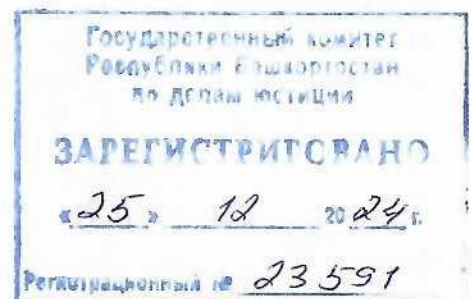 Государственный комитет
Республики Башкортостан
по делам юстиции
ЗАРЕГИСТРИРОВАНО
«25» 12 2024 г.
Регистрационный № 23591